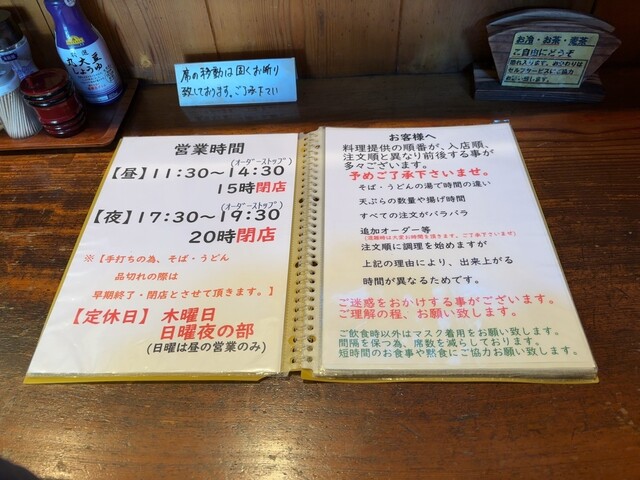 丸大豆
しょうゆ
席の移動は固くお断り
致しております。ご了承下さい
お冷・お茶・麦茶
ご自由にどうぞ
セルフサービスにご協力
営業時間
(オーダーストップ)
【昼】11:30～14:30
15時閉店
(オーダーストップ)
【夜】17:30～19:30
20時閉店
※【手打ちの為、そば・うどん
品切れの際は
早期終了・閉店とさせて頂きます。】
【定休日】 木曜日
日曜夜の部
(日曜は昼の営業のみ)
お客様へ
料理提供の順番が、入店順、
注文順と異なり前後する事が
多々ございます。
予めご了承下さいませ。
そば・うどんの湯で時間の違い
天ぷらの数量や揚げ時間
すべての注文がバラバラ
追加オーダー等
(混雑時は大変お時間を頂きます。ご了承下さいませ)
注文順に調理を始めますが
上記の理由により、出来上がる
時間が異なるためです。
ご迷惑をおかけする事がございます。
ご理解の程、お願い致します。
ご飲食時以外はマスク着用をお願い致します。
間隔を保つ為、席数を減らしております。
短時間のお食事や黙食にご協力お願い致します。